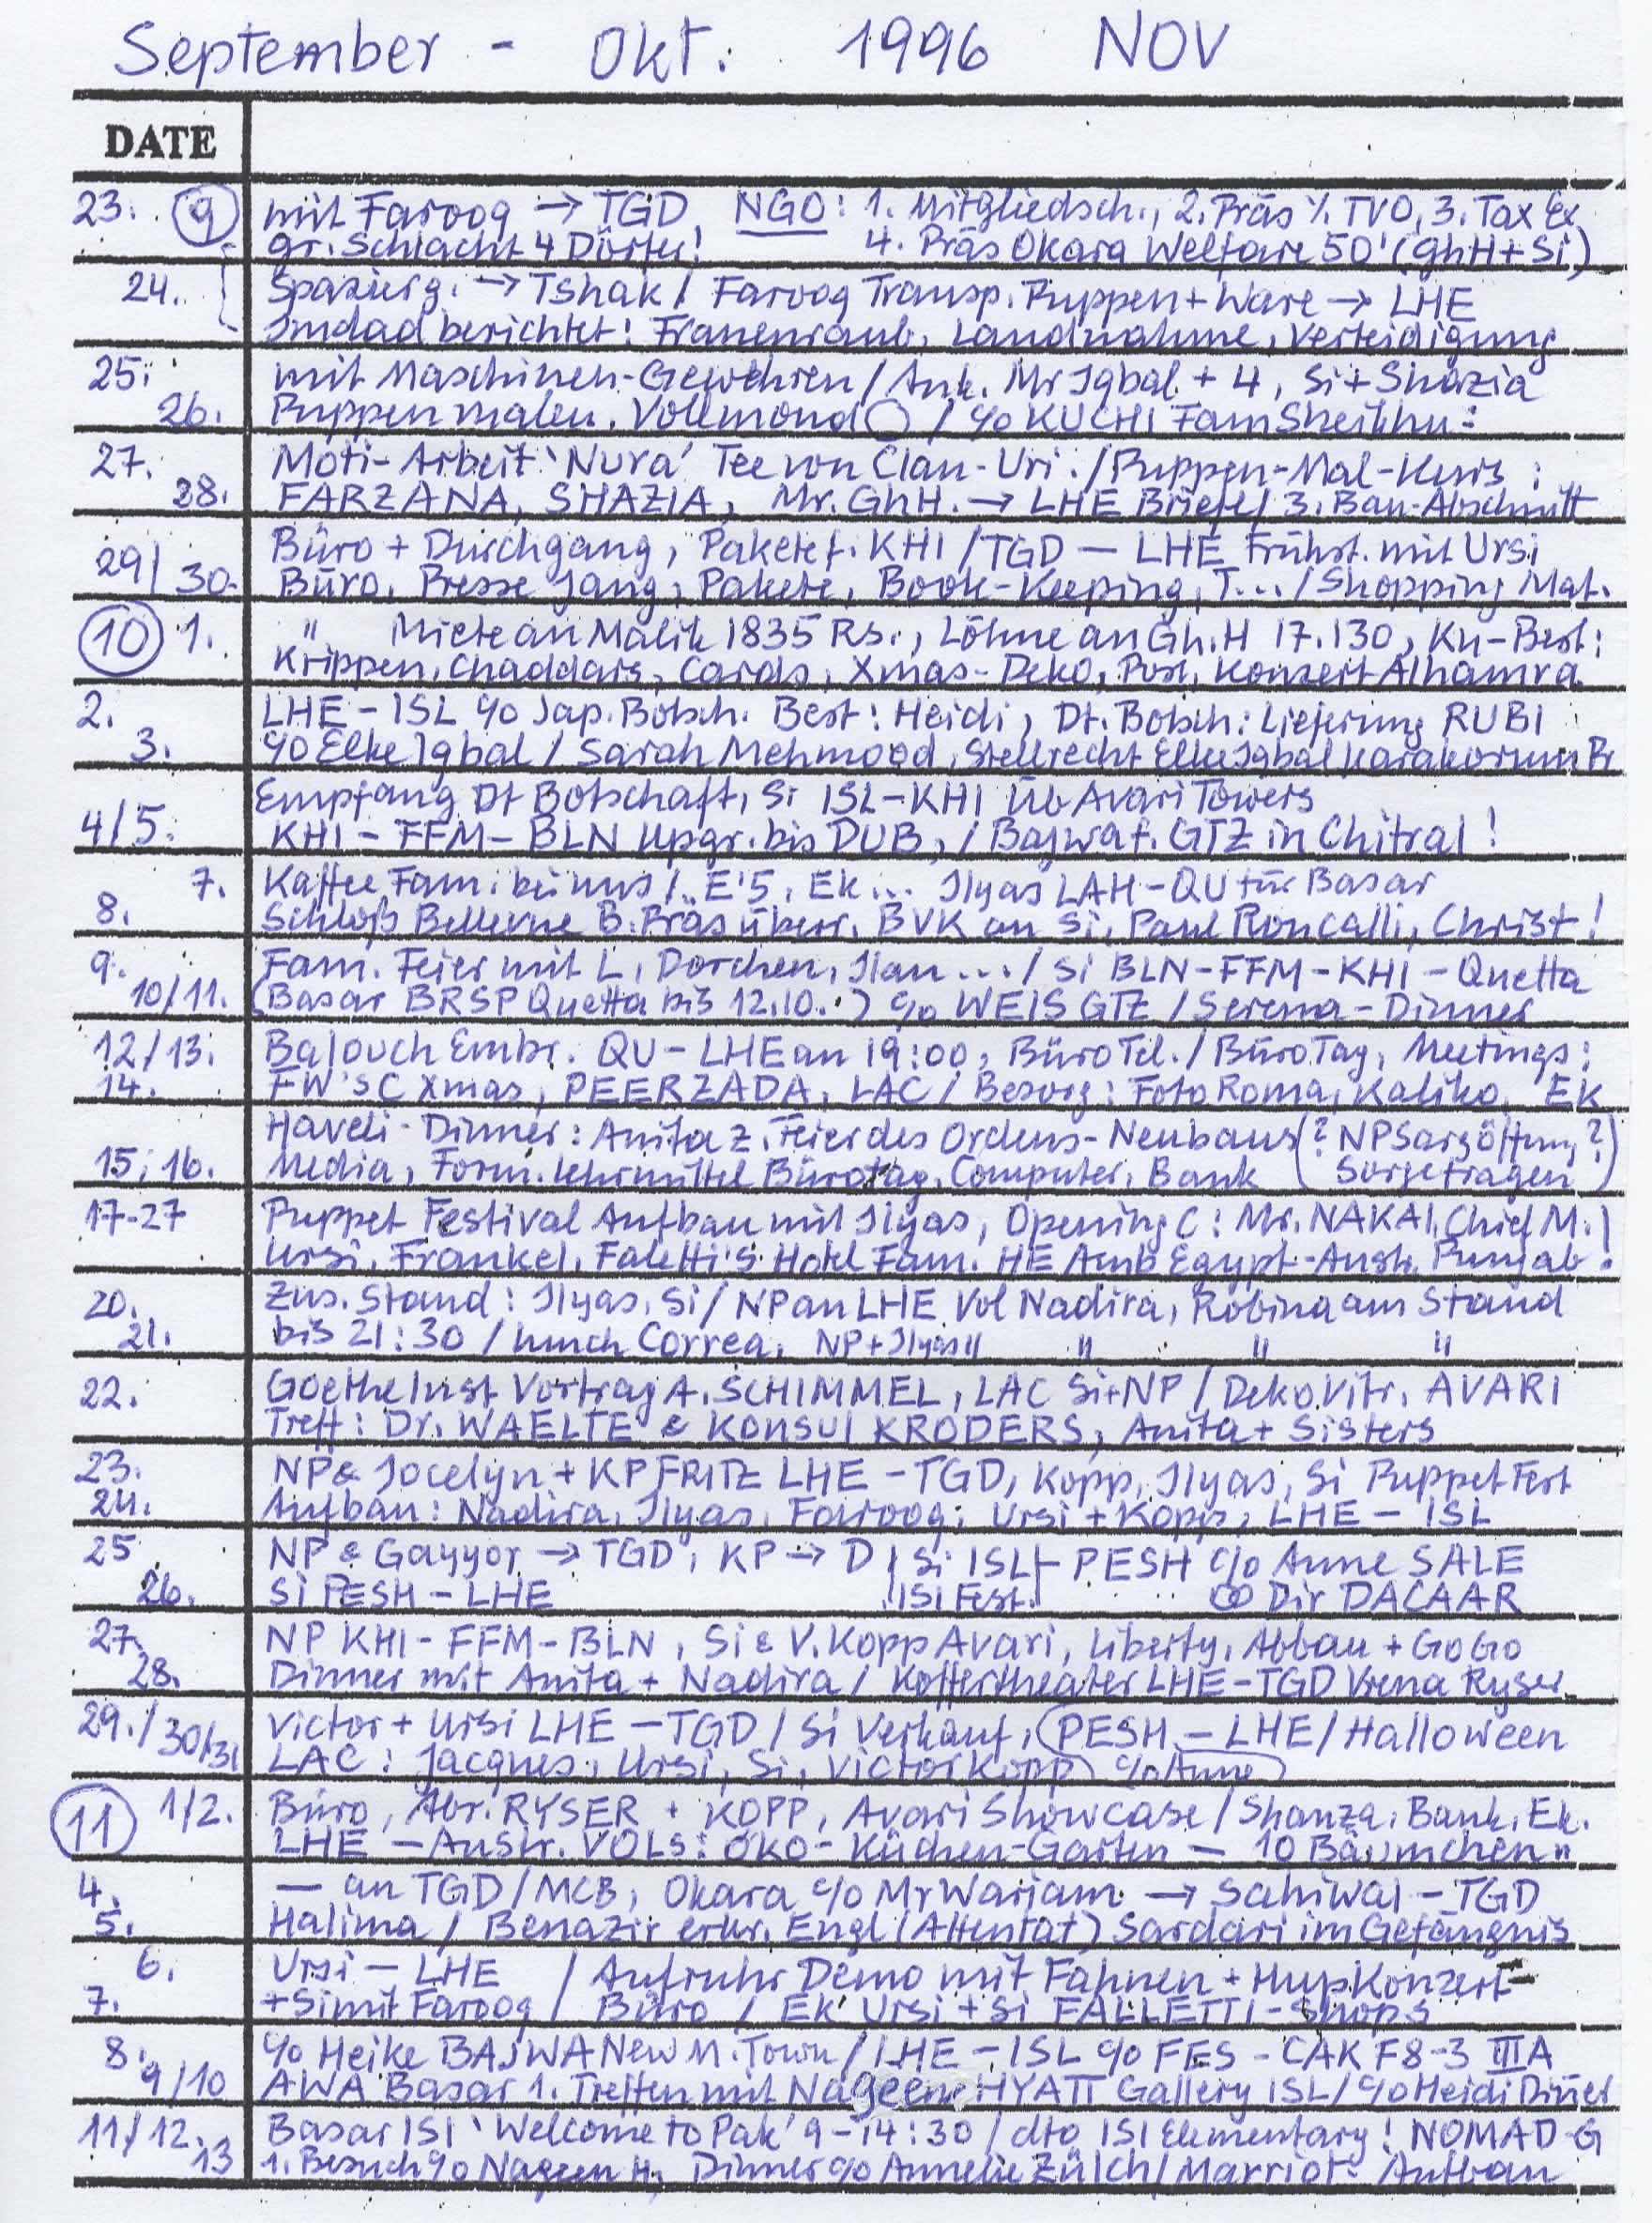 September - Okt. 1996 NOV
DATE
23. 9 mit Farooq → TGD, NGO: 1. Mitgliedsch., 2. Präs %. TVO, 3. Tax Ex
gr. Schlacht 4 Dörfer! 4. Präs Okara Welfare 50' (GhH + Si)
24. Spazierg. → Tshak / Farooq Transp. Puppen + Ware → LHE
Imdad berichtet: Frauenraub, Landnahme, Verteidigung
25. mit Maschinen-Gewehren / Ank. Mr Iqbal + 4, Si + Shazia
26. Puppen malen. Vollmond ○ / c/o KUCHI Fam Sheikhu:
27. Moti-Arbeit 'Nura' Tee von Clan-Uri. / Puppen-Mal-Kurs:
28. FARZANA, SHAZIA, Mr. GhH. → LHE Briefe / 3. Bau-Abschnitt
29/ Büro + Durchgang, Pakete f. KHI / TGD — LHE Frühst. mit Ursi
30. Büro, Presse Jang, Pakete, Book-Keeping, T... / Shopping Mat.
10 1. " Miete an Malik 1835 RS., Löhne an Gh.H 17.130, Kn-Best:
Krippen, Chaddars, Cards, Xmas-Deko, Post, Konzert Alhamra
2. LHE - ISL c/o Jap. Botsch. Best: Heidi, Dt. Botsch: Lieferung RUBI
3. c/o Elke Iqbal / Sarah Mehmood, Stellrecht Elke Iqbal Karakorum Pr
Empfang Dt Botschaft, Si ISL-KHI Üb Avari Towers
4/5. KHI - FFM - BLN upgr. bis DUB, / Bajwa f. GTZ in Chitral!
7. Kaffee Fam. bei uns / E'5, Ek... Ilyas LAH-QU für Basar
8. Schloß Bellevue B. Präs überr. BVK an Si, Paul Roncalli, Christ!
9. Fam. Feier mit L, Dorchen, Ilan ... / Si BLN-FFM-KHI-Quetta
10/11. (Basar BRSP Quetta bis 12.10..) c/o WEIS GTZ / Serena-Dinner
12/13. Balouch Embr. QU-LHE an 19:00, Büro Tel. / Büro Tag, Meetings:
14. FW'S C Xmas, PEERZADA, LAC / Besorg: Foto Roma, Kaliko, EK
Haveli-Dinner: Anita z. Feier des Ordens-Neubaus (? NP Sargöffnung ?
15, 16. Media, Form. Lehrmittel Bürotag, Computer, Bank ( Sorgetragen )
17-27 Puppet Festival Aufbau mit Ilyas, Opening C: Mr. NAKAI, Chief M.!
Ursi, Frankel, Faletti's Hotel Fam. HE Amb Egypt-Ausst. Punjab!
20. Zus. Stand: Ilyas, Si / NP an LHE Vol Nadira, Robina am Stand
21. bis 21:30 / Lunch Correa, NP + Ilyas " " " "
22. Goethe Inst Vortrag A. SCHIMMEL, LAC Si+NP / Deko Vitr. AVARI
Treff: Dr. WAELTE & KONSUL KRÖDERS, Anita + Sisters
23. NP & Jocelyn + KP FRITZ LHE - TGD, Kopp, Ilyas, Si Puppet Fest
24. Aufbau: Nadira, Ilyas, Farooq; Ursi + Kopp, LHE - ISL
25 NP & Gayyor → TGD, KP → D / Si ISL - PESH c/o Anne SALE
26. Si PESH - LHE ISI Fest. Dir DACAAR
27. NP KHI - FFM - BLN, Si & V. Kopp Avari, Liberty, Abbau + GoGo
28. Dinner mit Anita + Nadira / Koffertheater LHE-TGD Vrena Ryser
29./ Victor + Ursi LHE - TGD / Si Verkauf, (PESH - LHE / Halloween
30/31 LAC: Jacques, Ursi, Si, Victor Kopp) c/o Anne
11 1/2. Büro, Abr. RYSER + KOPP, Avari Showcase / Shanza, Bank, Ek.
LHE - Austr. VOLS: Öko-Küchen-Garten - 10 Bäumchen "
4. - an TGD / MCB, Okara c/o Mr Wariam → Sahiwal - TGD
5. Halima / Benazir erkr. Engl (Attentat) Sardari im Gefängnis
6. Ursi - LHE / Aufruhr Demo mit Fahnen + Hupkonzert
7. + Si mit Farooq / Büro / Ek Ursi + Si FALLETTI - Shops
8. c/o Heike BAJWA New M. Town / LHE - ISL c/o FES - CAK F8-3 III A
9/10 AWA Basar 1. Treffen mit Nageen HYATT Gallery ISL / c/o Heidi Diñer
11/12. Basar ISI 'Welcome to Pak' 9-14:30 / dto ISI Elementary! NOMAD-G
13 1. Besuch c/o Nageen H, Dinner c/o Annelie Zülch / Marriot - Aufbau